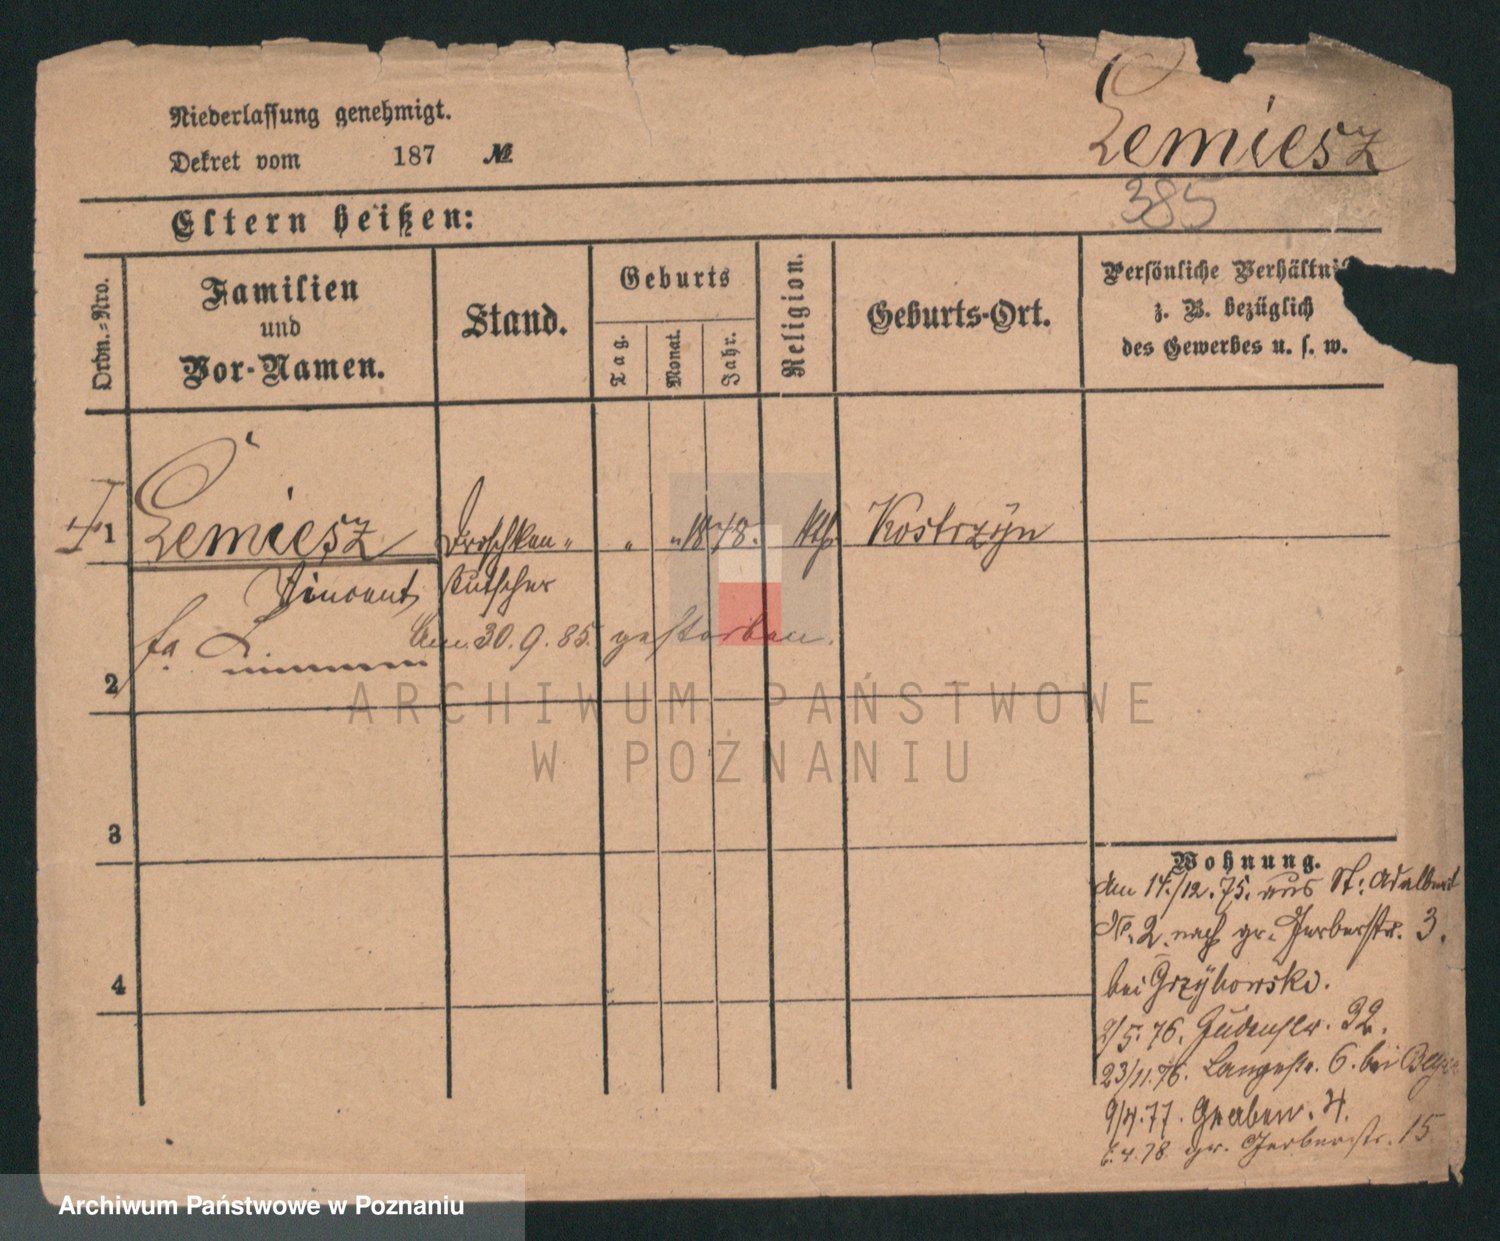 Lemiesz
Niederlassung genehmigt.
Dekret vom 187 №
385
Eltern heißen:
Ordn.=Nro.
Familien
und
Vor-Namen.
Stand.
Geburts
Tag.
Monat.
Jahr.
Religion.
Geburts-Ort.
Persönliche Verhältni
z. B. bezüglich
des Gewerbes u. s. w.
1 Lemiesz Droschken „ „ 1848. kth. Kostrzyn
Vincent kutscher
Am 30.9.85. gestorben.
2
3
4
Wohnung.
Am 14./12.75. aus St: Adalbert
N. 2 nach gr. Gerberstr. 3.
bei Grzybowski.
2/5.76. Judenstr. 32.
23/11.76. Langestr. 6. bei
9/4.77. Graben. 4.
4.78 gr. Gerberstr. 15
ARCHIWUM PAŃSTWOWE
W POZNANIU
Archiwum Państwowe w Poznaniu